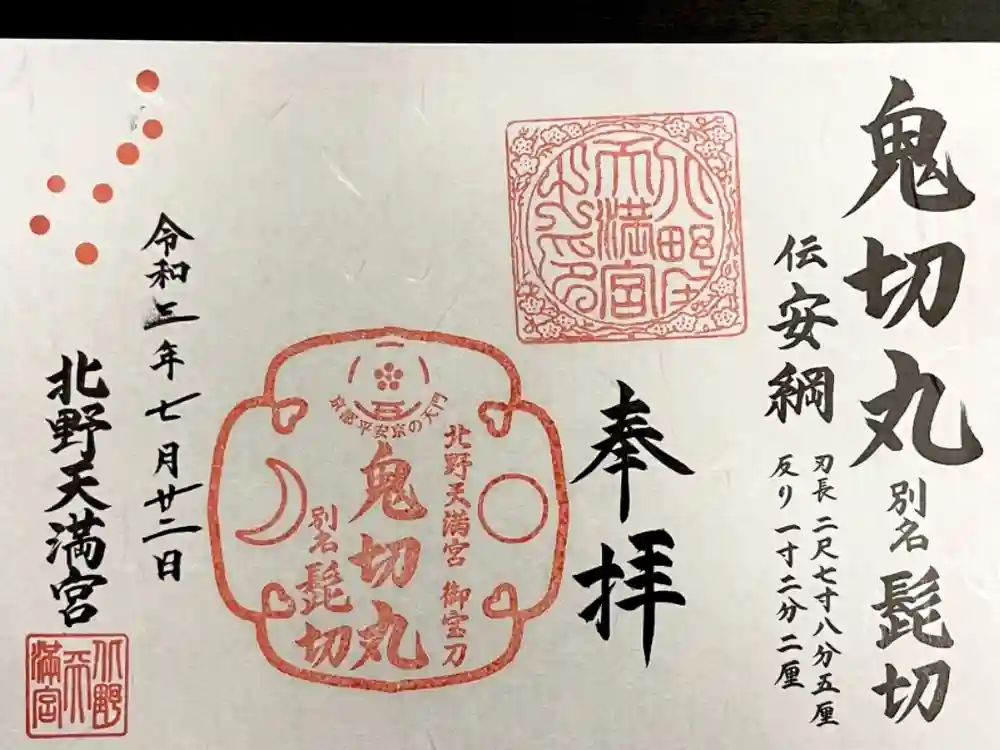 鬼切丸 別名 髭切
伝 安綱
刃長 二尺七寸八分五厘
反り 一寸二分二厘
奉拝
北野天満宮之印
京都平安京の天門
北野天満宮 御宝刀
鬼切丸
別名 髭切
令和三年七月廿二日
北野天満宮
北野天満宮